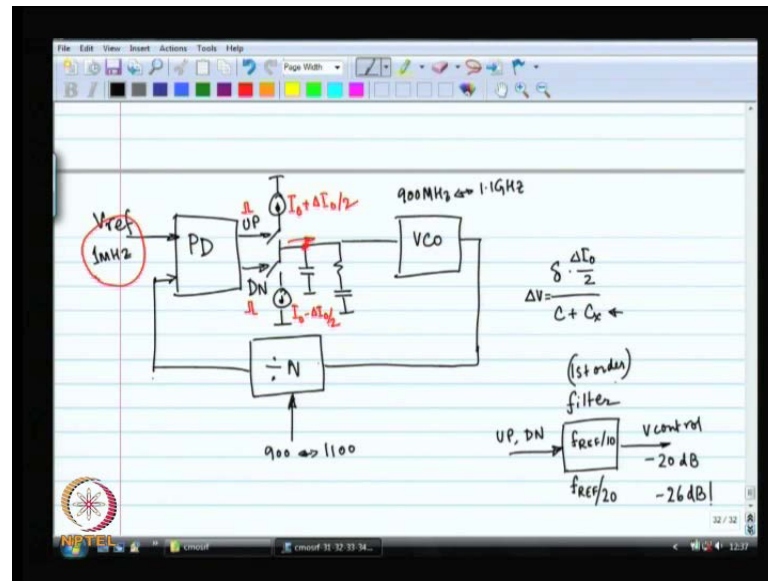 File Edit View Insert Actions Tools Help
Page Width
B I
Vref
1MHz
PD
UP
DN
I₀+ΔI₀/2
I₀-ΔI₀/2
900MHz ⇔ 1.1GHz
VCO
÷N
900 ⇔ 1100
ΔV = δ · ΔI₀/2 / C + Cx ←
(1st order)
filter
UP, DN
fREF/10
Vcontrol
-20 dB
fREF/20
-26 dB!
32 / 32
NPTEL
cmosrf
cmosrf-31-32-33-34...
12:37